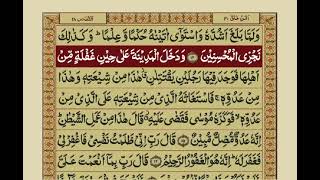 امن خلق ۲۰
القصص ۲۸
وَلَمَّا بَلَغَ اَشُدَّهٗ وَاسْتَوٰۤى اٰتَیْنٰهُ حُكْمًا وَّعِلْمًا ؕ وَكَذٰلِكَ
نَجْزِی الْمُحْسِنِیْنَ ﴿۱۴﴾ وَدَخَلَ الْمَدِیْنَةَ عَلٰى حِیْنِ غَفْلَةٍ مِّنْ
اَهْلِهَا فَوَجَدَ فِیْهَا رَجُلَیْنِ یَقْتَتِلٰنِ ؗ هٰذَا مِنْ شِیْعَتِهٖ وَهٰذَا
مِنْ عَدُوِّهٖ ۚ فَاسْتَغَاثَهُ الَّذِیْ مِنْ شِیْعَتِهٖ عَلَى الَّذِیْ مِنْ
عَدُوِّهٖ ۙ فَوَكَزَهٗ مُوْسٰى فَقَضٰى عَلَیْهِ ؗ قَالَ هٰذَا مِنْ عَمَلِ الشَّیْطٰنِ ؕ
اِنَّهٗ عَدُوٌّ مُّضِلٌّ مُّبِیْنٌ ﴿۱۵﴾ قَالَ رَبِّ اِنِّیْ ظَلَمْتُ نَفْسِیْ فَاغْفِرْ لِیْ
فَغَفَرَ لَهٗ ؕ اِنَّهٗ هُوَ الْغَفُوْرُ الرَّحِیْمُ ﴿۱۶﴾ قَالَ رَبِّ بِمَاۤ اَنْعَمْتَ عَلَیَّ